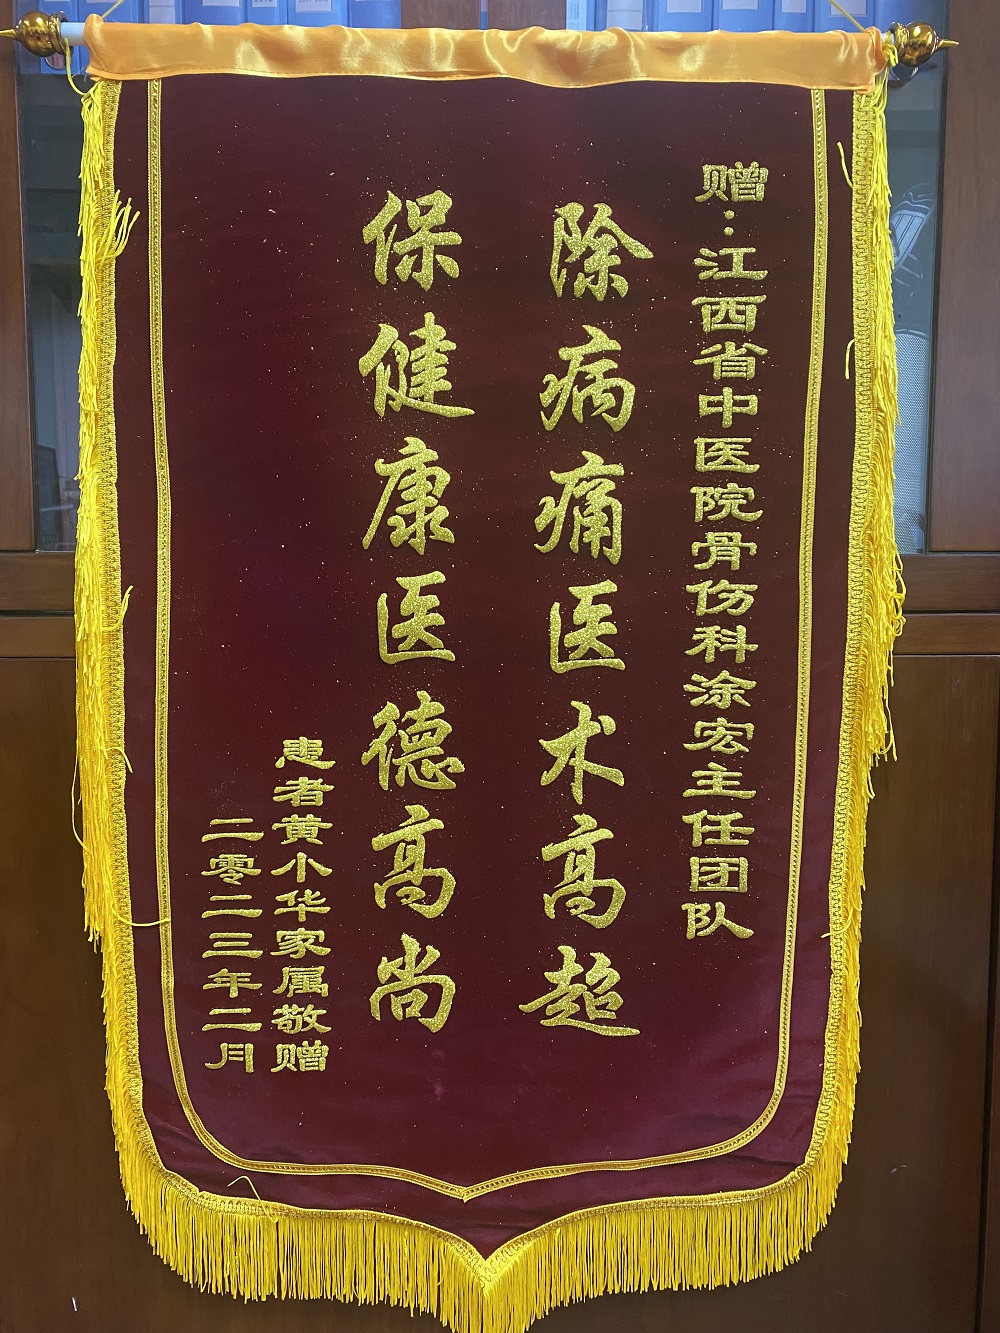 赠：江西省中医院骨伤科涂宏主任团队
除病痛医术高超
保健康医德高尚
患者黄小华家属敬赠
二零二三年二月